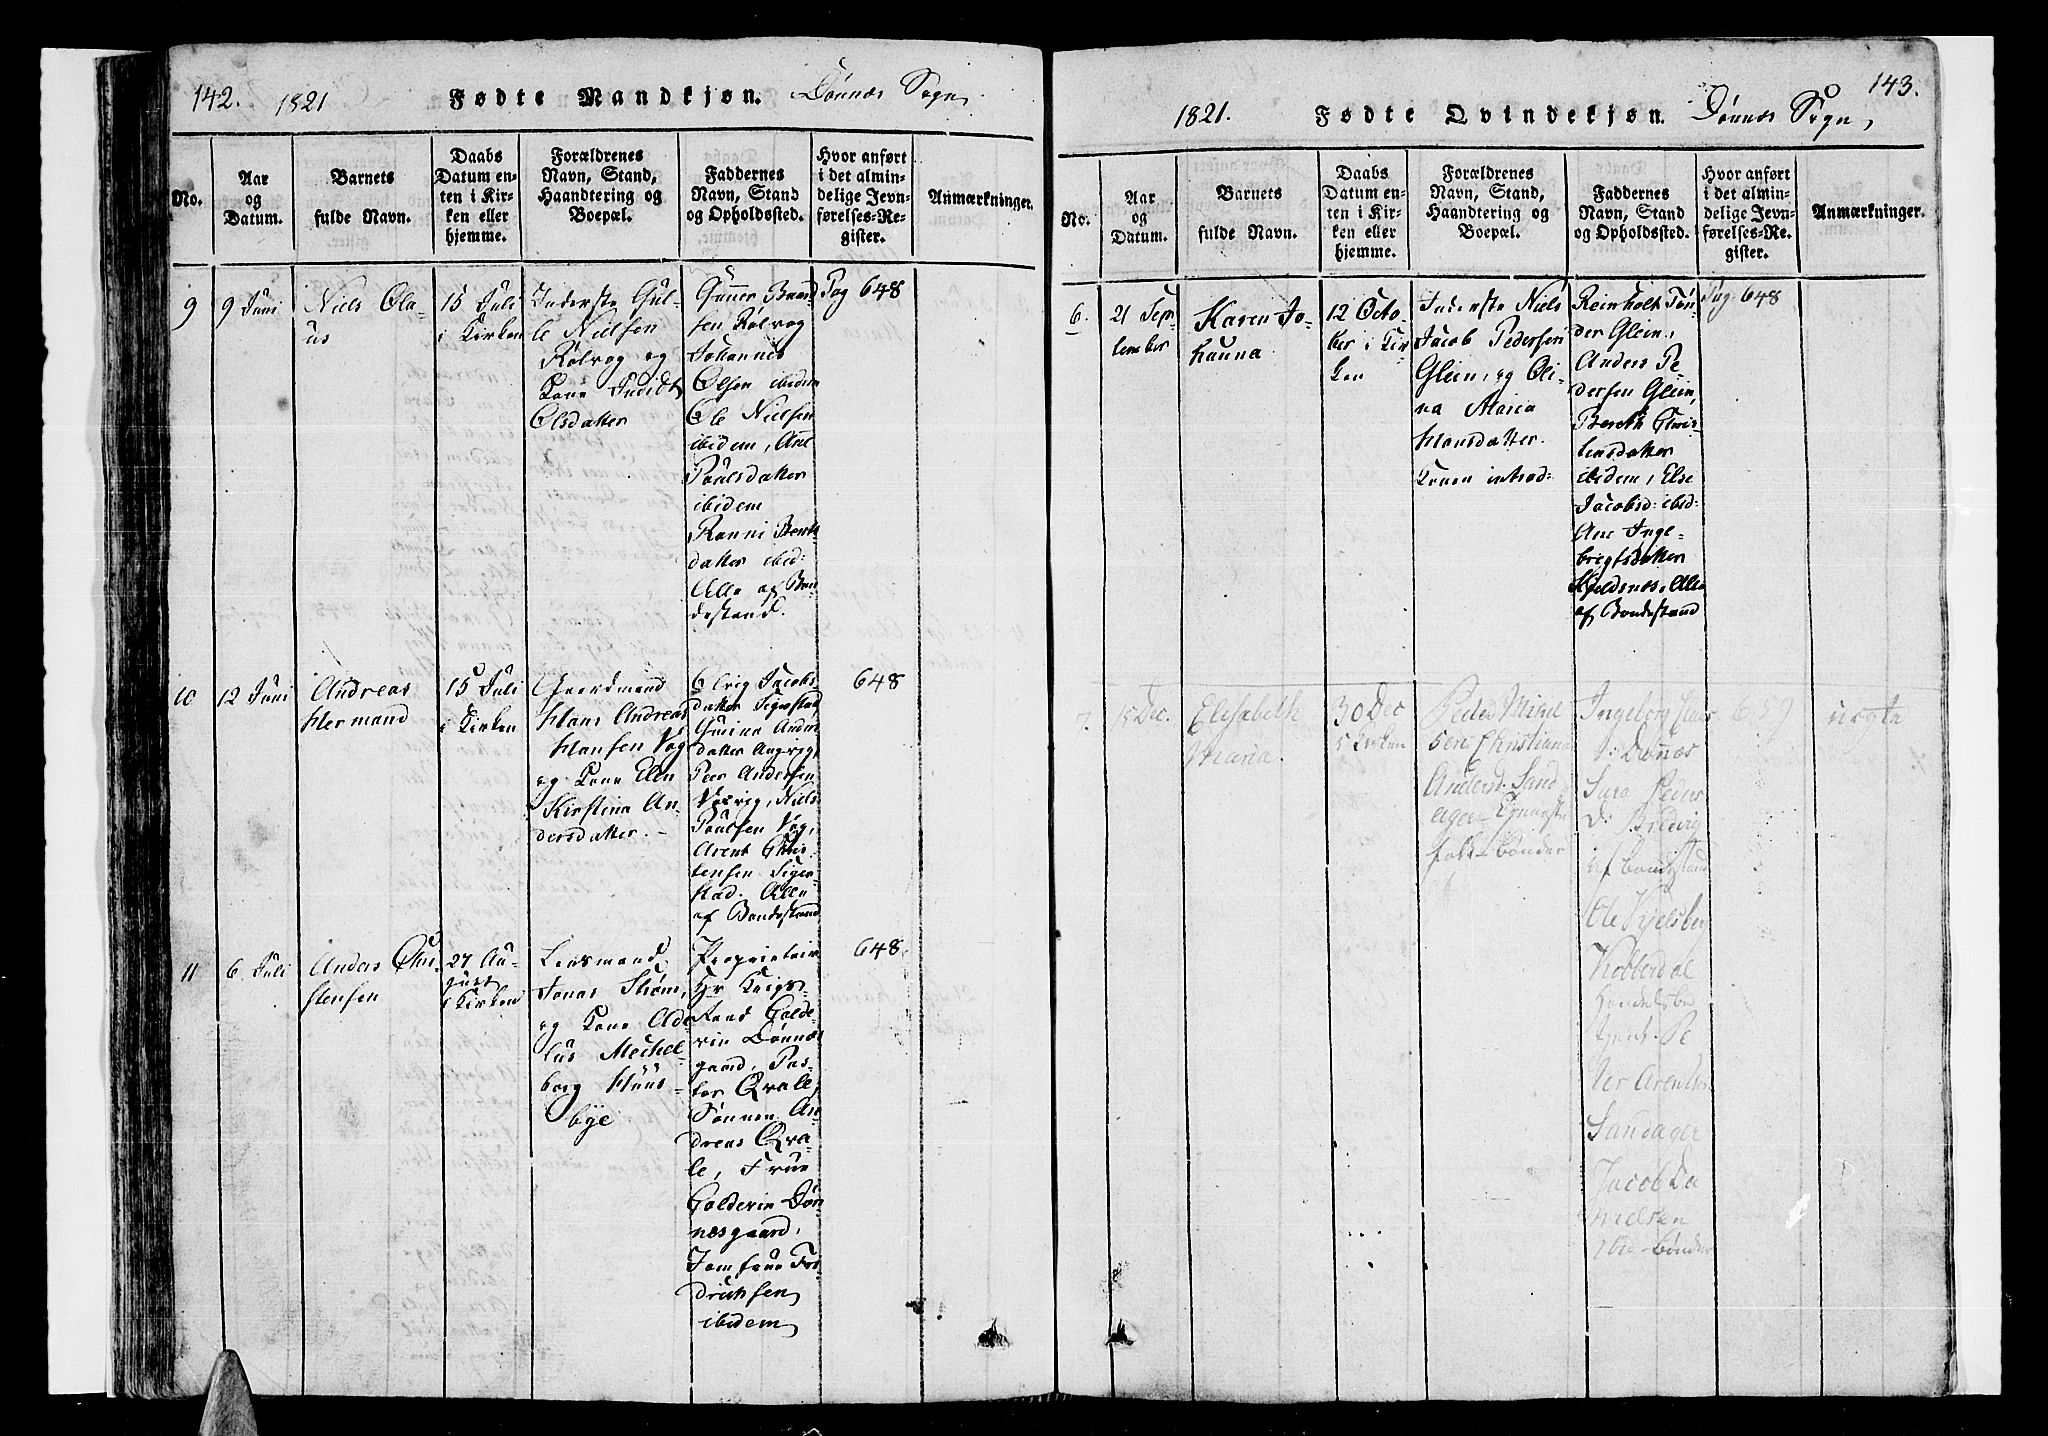 142. 1821 Fødte Mandkjøn. Dønnes Sogn
No.
Aar
og
Datum.
Barnets
fulde Navn.
Daabs
Datum en-
ten i Kir-
ken eller
hjemme.
Forældrenes
Navn, Stand,
Haandtering og
Boepæl.
Faddernes
Navn, Stand
og Opholdssted.
Hvor anført
i det almin-
delige Jevn-
førelses-Re-
gister.
Anmærkninger.
9
9 Juni
Niels Ola-
us
15 Juli
i Kirken
Inderste Gul-
le Nielsen
Rølvog og
Kone Judidt
Olsdatter
Gunner
sen Rølvog
Johannes
Olsen ibidem
Ole Nielsen
ibidem, Ane
Poulsdatter
ibidem
Ranni Bents
datter ibid:
Alle af Bon-
destand.
Pag 648
10
12 Juni
Andreas
Hermand
15 Juli
i Kirken
Gaardmand
Hans Andreas
Hansen Vog
og Kone Elen
Kirstina An-
dersdatter. -
Jacobs
datter Sigerstad
Anders
datter Angvig,
Peer Andersen
Niels
Poulsen Vog,
Arent Chris-
tensen Siger-
stad. Alle
af Bondestand
648
11
6. Juli
Anders Chri-
stensen
27 Au-
gust
i Kirken
Lensmand
Jonas Strøm,
og Kone Ade-
lus Mechel-
borg Huus-
bye
Proprietair
Hr Krigs-
raad Colde-
vin Dønnes
gaard, Pas-
tor Qvale,
Sønnen An-
dreas Qva-
le, Frue
Coldevin Døn-
nesgaard,
Jomfrue Fri-
drichsen
ibidem
648.
1821. Fødte Qvindekjøn. Dønnes Sogn 143.
No.
Aar
og
Datum.
Barnets
fulde Navn.
Daabs
Datum en-
ten i Kir-
ken eller
hjemme.
Forældrenes
Navn, Stand,
Haandtering og
Boepæl.
Faddernes
Navn, Stand
og Opholdssted.
Hvor anført
i det almin-
delige Jevn-
førelses-Re-
gister.
Anmærkninger.
6.
21 Sep-
tember
Karen Jo-
hanna
12 Octo-
ber i Kir-
ken
Inderste Niels
Jacob Pedersen
Glein, og Oli-
na Maria
Hansdatter.
Konen introd:
Reinholt Tøn-
der Glein,
Anders Pe-
dersen Glein,
Bereth Chris-
tensdatter
ibidem, Else
Jacobsd: ibid:
Ane Inge-
brigtsdatter
Kjeldsnes, Alle
af Bondestand
Pag. 648
7.
15 Dec.
Elisabeth
Maria.
30 Dec
Kirken
Peder Mikel
sen Christiana
Andersd. Sand
ager
folk - Bønder
Ingeborg
Dønnes
Sara Peders
D:
af bondestand
Ole Kjelsberg
Kobberdal
Handelsbe
tjent. Pe
ter Arentsen
Sandager
Jacob Da
nielsen
ibid - Bønder
657
uægte